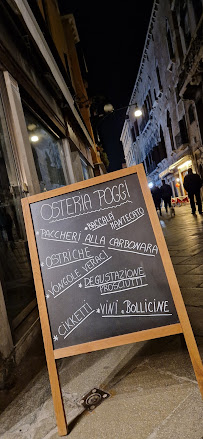 OSTERIA POGGI
* BACCALÀ
MANTECATO
* PACCHERI ALLA CARBONARA
* OSTRICHE
* VONGOLE VERACI
* DEGUSTAZIONE
PROSCIUTTI
* CIKKETTI
* VINI & BOLLICINE